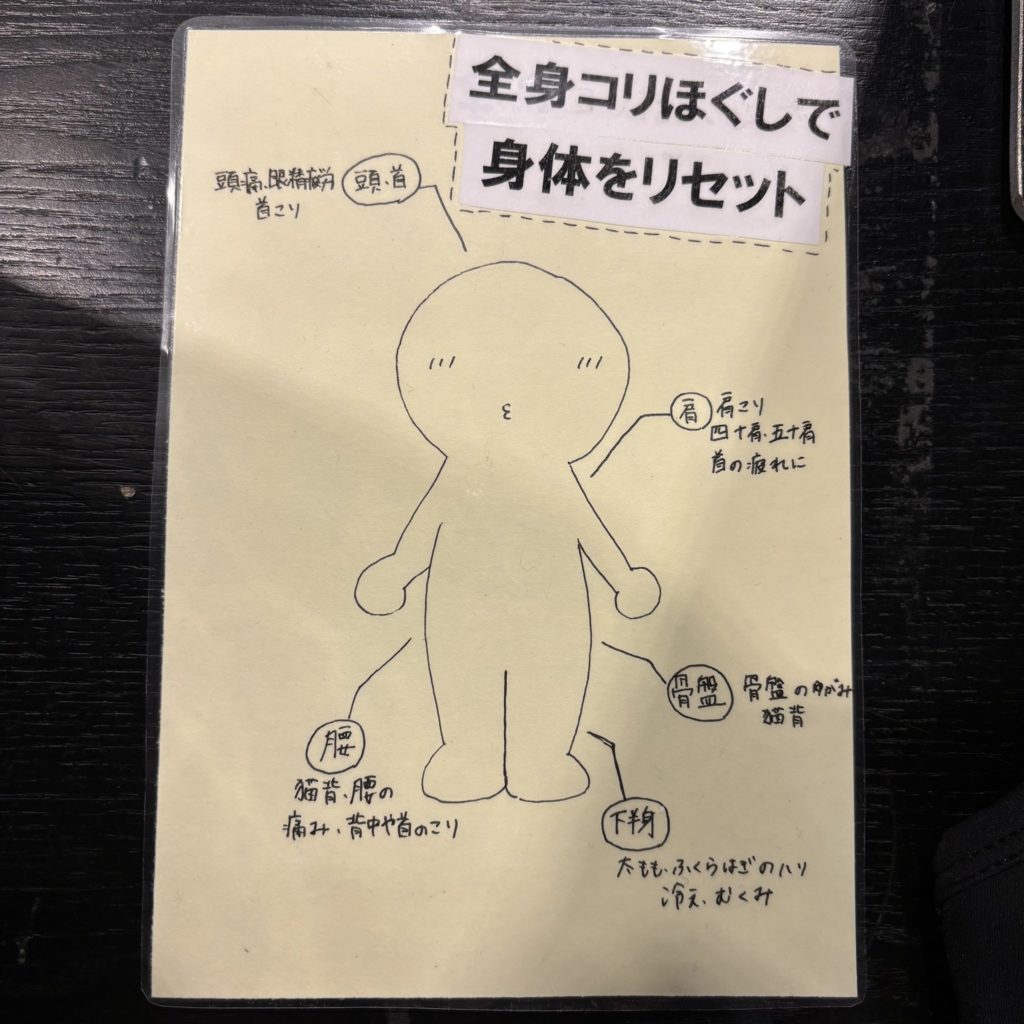 全身コリほぐしで
身体をリセット
頭痛、眼精疲労
首こり
頭、首
肩
肩こり
四十肩、五十肩
首の疲れに
骨盤
骨盤のゆがみ
猫背
腰
猫背、腰の
痛み、背中や首のこり
下半身
太もも、ふくらはぎのハリ
冷え、むくみ